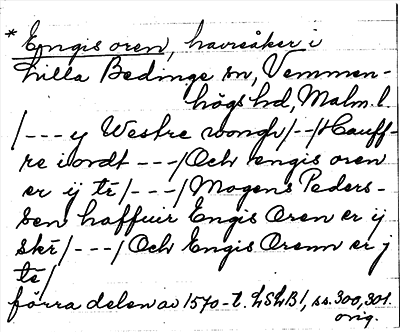 * Engis oren, havreåker i
Lilla Bedinge sn, Vemmen-
högs hd, Malm. l.
/---y Westre wongh/--/Hauff-
re iordt ---/Och engis oren
er ij te/---/Mogens Peders-
sen haffuir Engis Oren er ij
ske/---/Och Engis Orenn er j
te/
förra delen av 1570-t. LSLB1, ss. 300, 301.
orig.